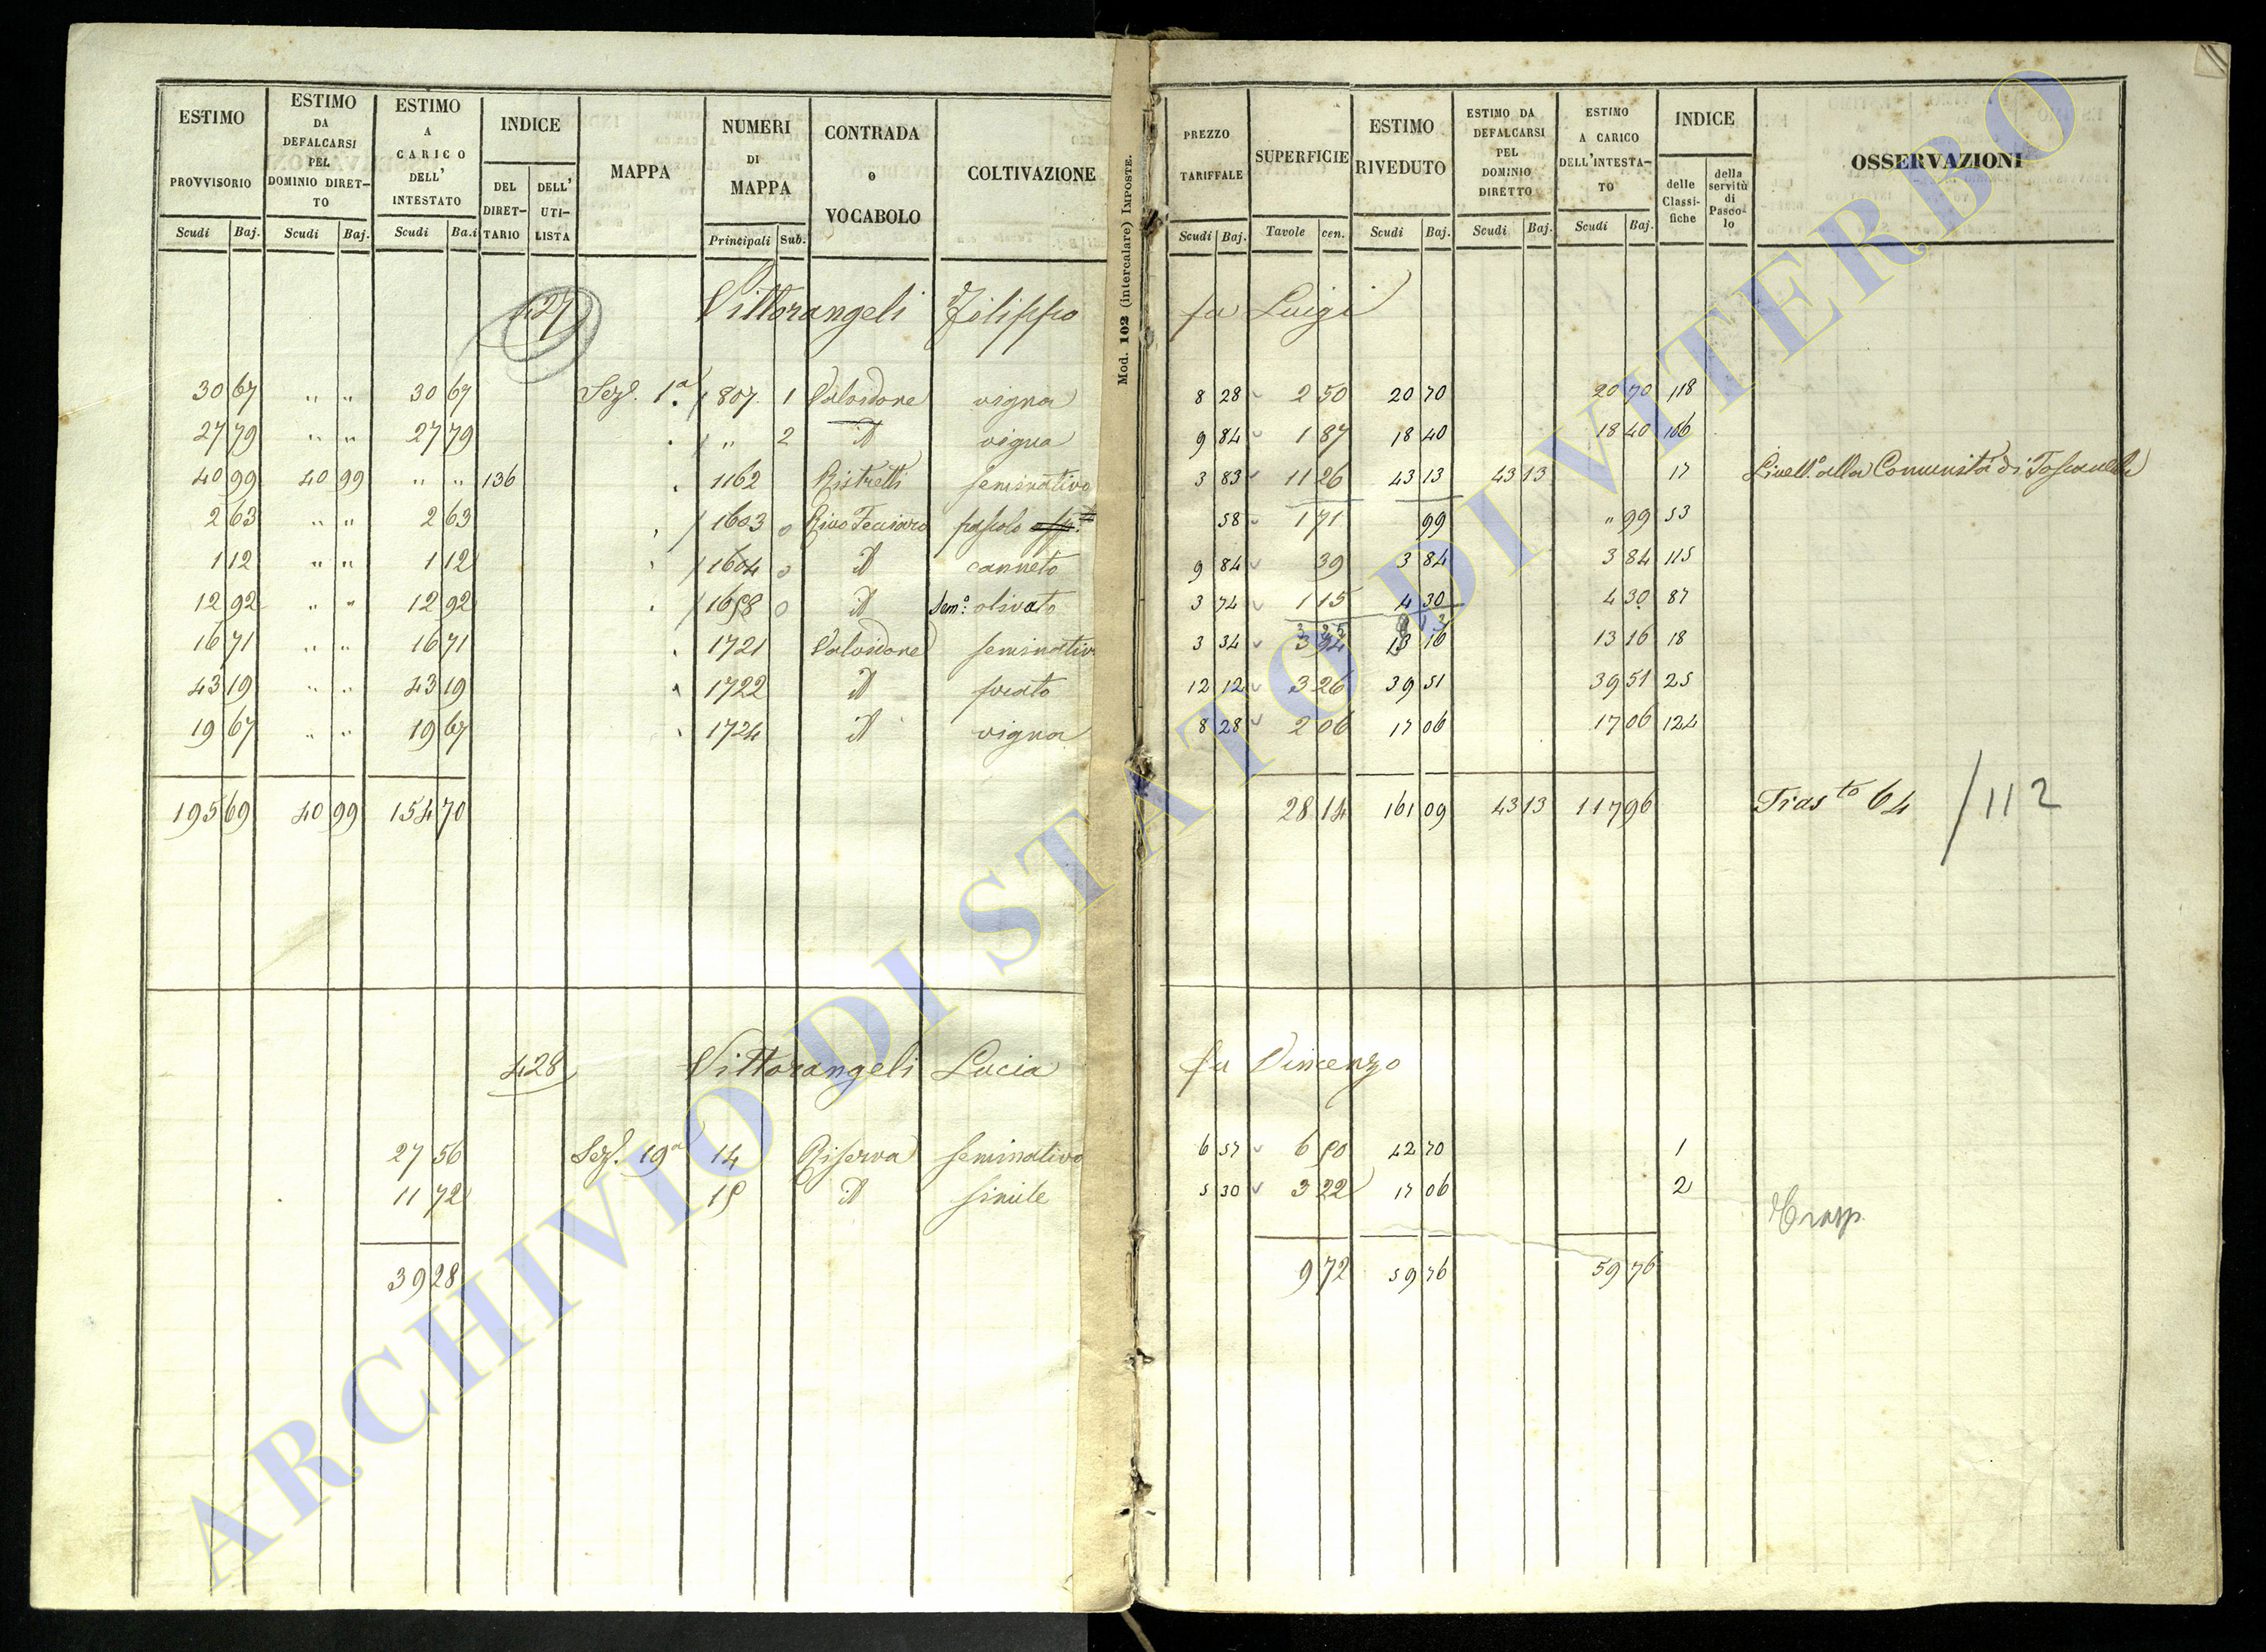 ESTIMO PROVVISORIO Scudi Baj.
ESTIMO DA DEFALCARSI PEL DOMINIO DIRET-TO Scudi Baj.
ESTIMO A CARICO DELL' INTESTATO Scudi Ba.i
INDICE DEL DIRET-TARIO DELL' UTI-LISTA
MAPPA
NUMERI DI MAPPA Principali Sub.
CONTRADA o VOCABOLO
COLTIVAZIONE
Mod. 102 (intercalare) IMPOSTE.
PREZZO TARIFFALE Scudi Baj.
SUPERFICIE Tavole cen.
ESTIMO RIVEDUTO Scudi Baj.
ESTIMO DA DEFALCARSI PEL DOMINIO DIRETTO Scudi Baj.
ESTIMO A CARICO DELL'INTESTA-TO Scudi Baj.
INDICE delle Classi-fiche della servitù di Pasco-lo
OSSERVAZIONI
427 Vittorangeli Filippo fu Luigi
30 67 " " 30 67 Sez. 1a 807 1 Valvidone vigna 8 28 2 50 20 70 20 70 118
27 79 " " 27 79 " 2 id vigna 9 84 1 87 18 40 18 40 166
40 99 40 99 " " 136 1162 Ristretti seminativo 3 83 11 26 43 13 43 13 17 Livello alla Comunità di Toscanella
2 63 " " 2 63 1603 0 Rivo Fecciaro pascolo 58 1 71 99 " 99 53
1 12 " " 1 12 1604 0 id canneto 9 84 39 3 84 3 84 115
12 92 " " 12 92 1658 0 id Sem.o olivato 3 74 1 15 4 30 4 30 87
16 71 " " 16 71 1721 Valvidone seminativ 3 34 3 94 13 16 13 16 18
43 19 " " 43 19 1722 id prato 12 12 3 26 39 51 39 51 25
19 67 " " 19 67 1724 id vigna 8 28 2 06 17 06 17 06 124
195 69 40 99 154 70 28 14 161 09 43 13 117 96 Tras.to 64 /112
428 Vittorangeli Lucia fu Vincenzo
27 56 Sez. 19a 14 Riserva seminativo 6 57 6 50 42 70 1
11 72 15 id simile 5 30 3 22 17 06 2
Trasp.
39 28 9 72 59 76 59 76
ARCHIVIO DI STATO DI VITERBO